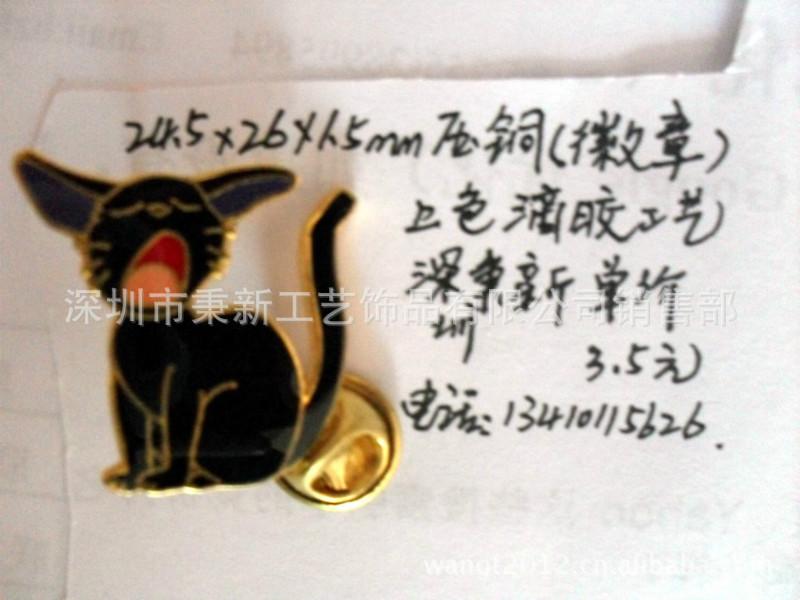 24.5×26×1.5mm 压铜(徽章)
上色滴胶工艺
深圳秉新 单价
3.5元
电话:13410115626.
深圳市秉新工艺饰品有限公司销售部
Yahoo
wangt2012.cn.alibaba.com